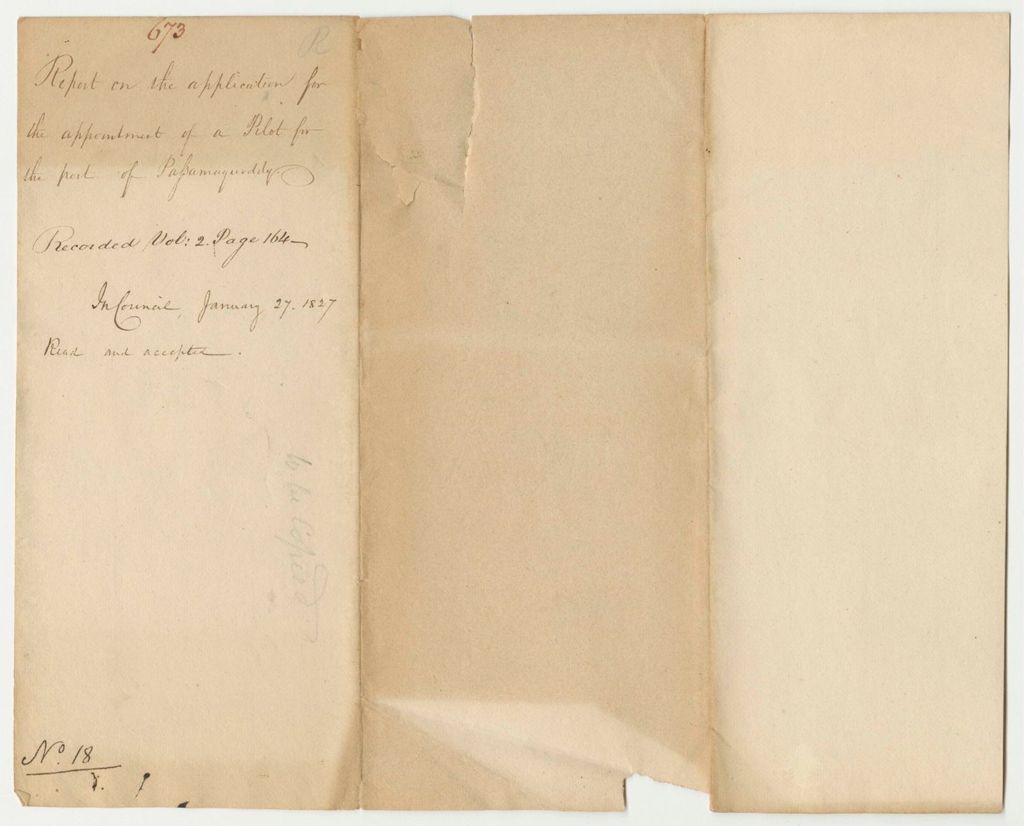 673
R
Report on the application for
the appointment of a Pilot for
the port of Paſsamaquoddy.
Recorded Vol: 2. Page 164
In Council, January 27. 1827
Read and accepted.
to be Copied
No. 18